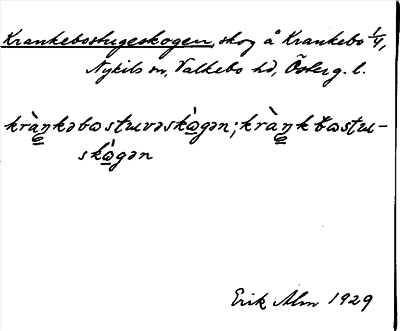 Krankebostugeskogen, skog å Krankebo 1/4,
Nykils sn, Valkebo hd, Österg. l.
krànkəbωstɯvəskὼgən; krànkbωstɯ-
skὼgən
Erik Alm 1929